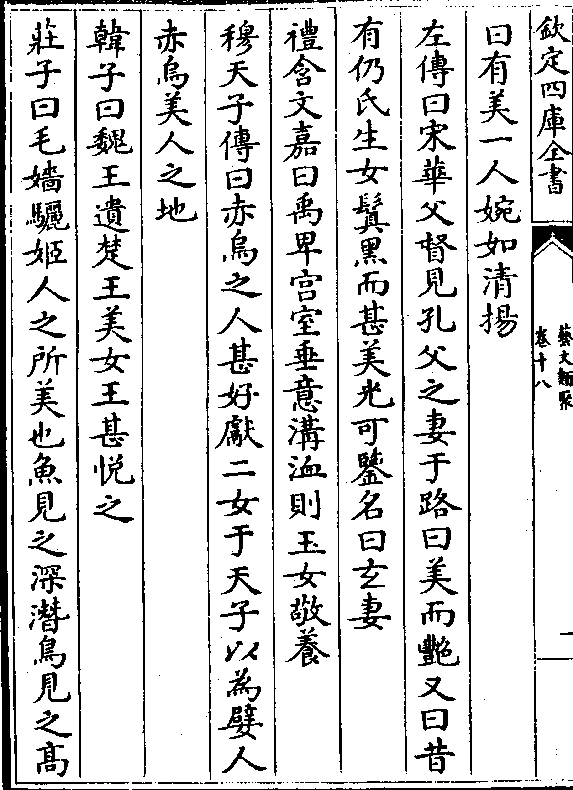 欽定四庫全書
藝文類聚
卷十八
一
曰有美一人婉如清揚
左傳曰宋華父督見孔父之妻于路曰美而艷又曰昔
有仍氏生女鬒黑而甚美光可鑒名曰玄妻
禮含文嘉曰禹卑宫室垂意溝洫則玉女敬養
穆天子傳曰赤烏之人甚好獻二女于天子以為嬖人
赤烏美人之地
韓子曰魏王遺楚王美女王甚悅之
莊子曰毛嬙驪姬人之所美也魚見之深潛鳥見之高